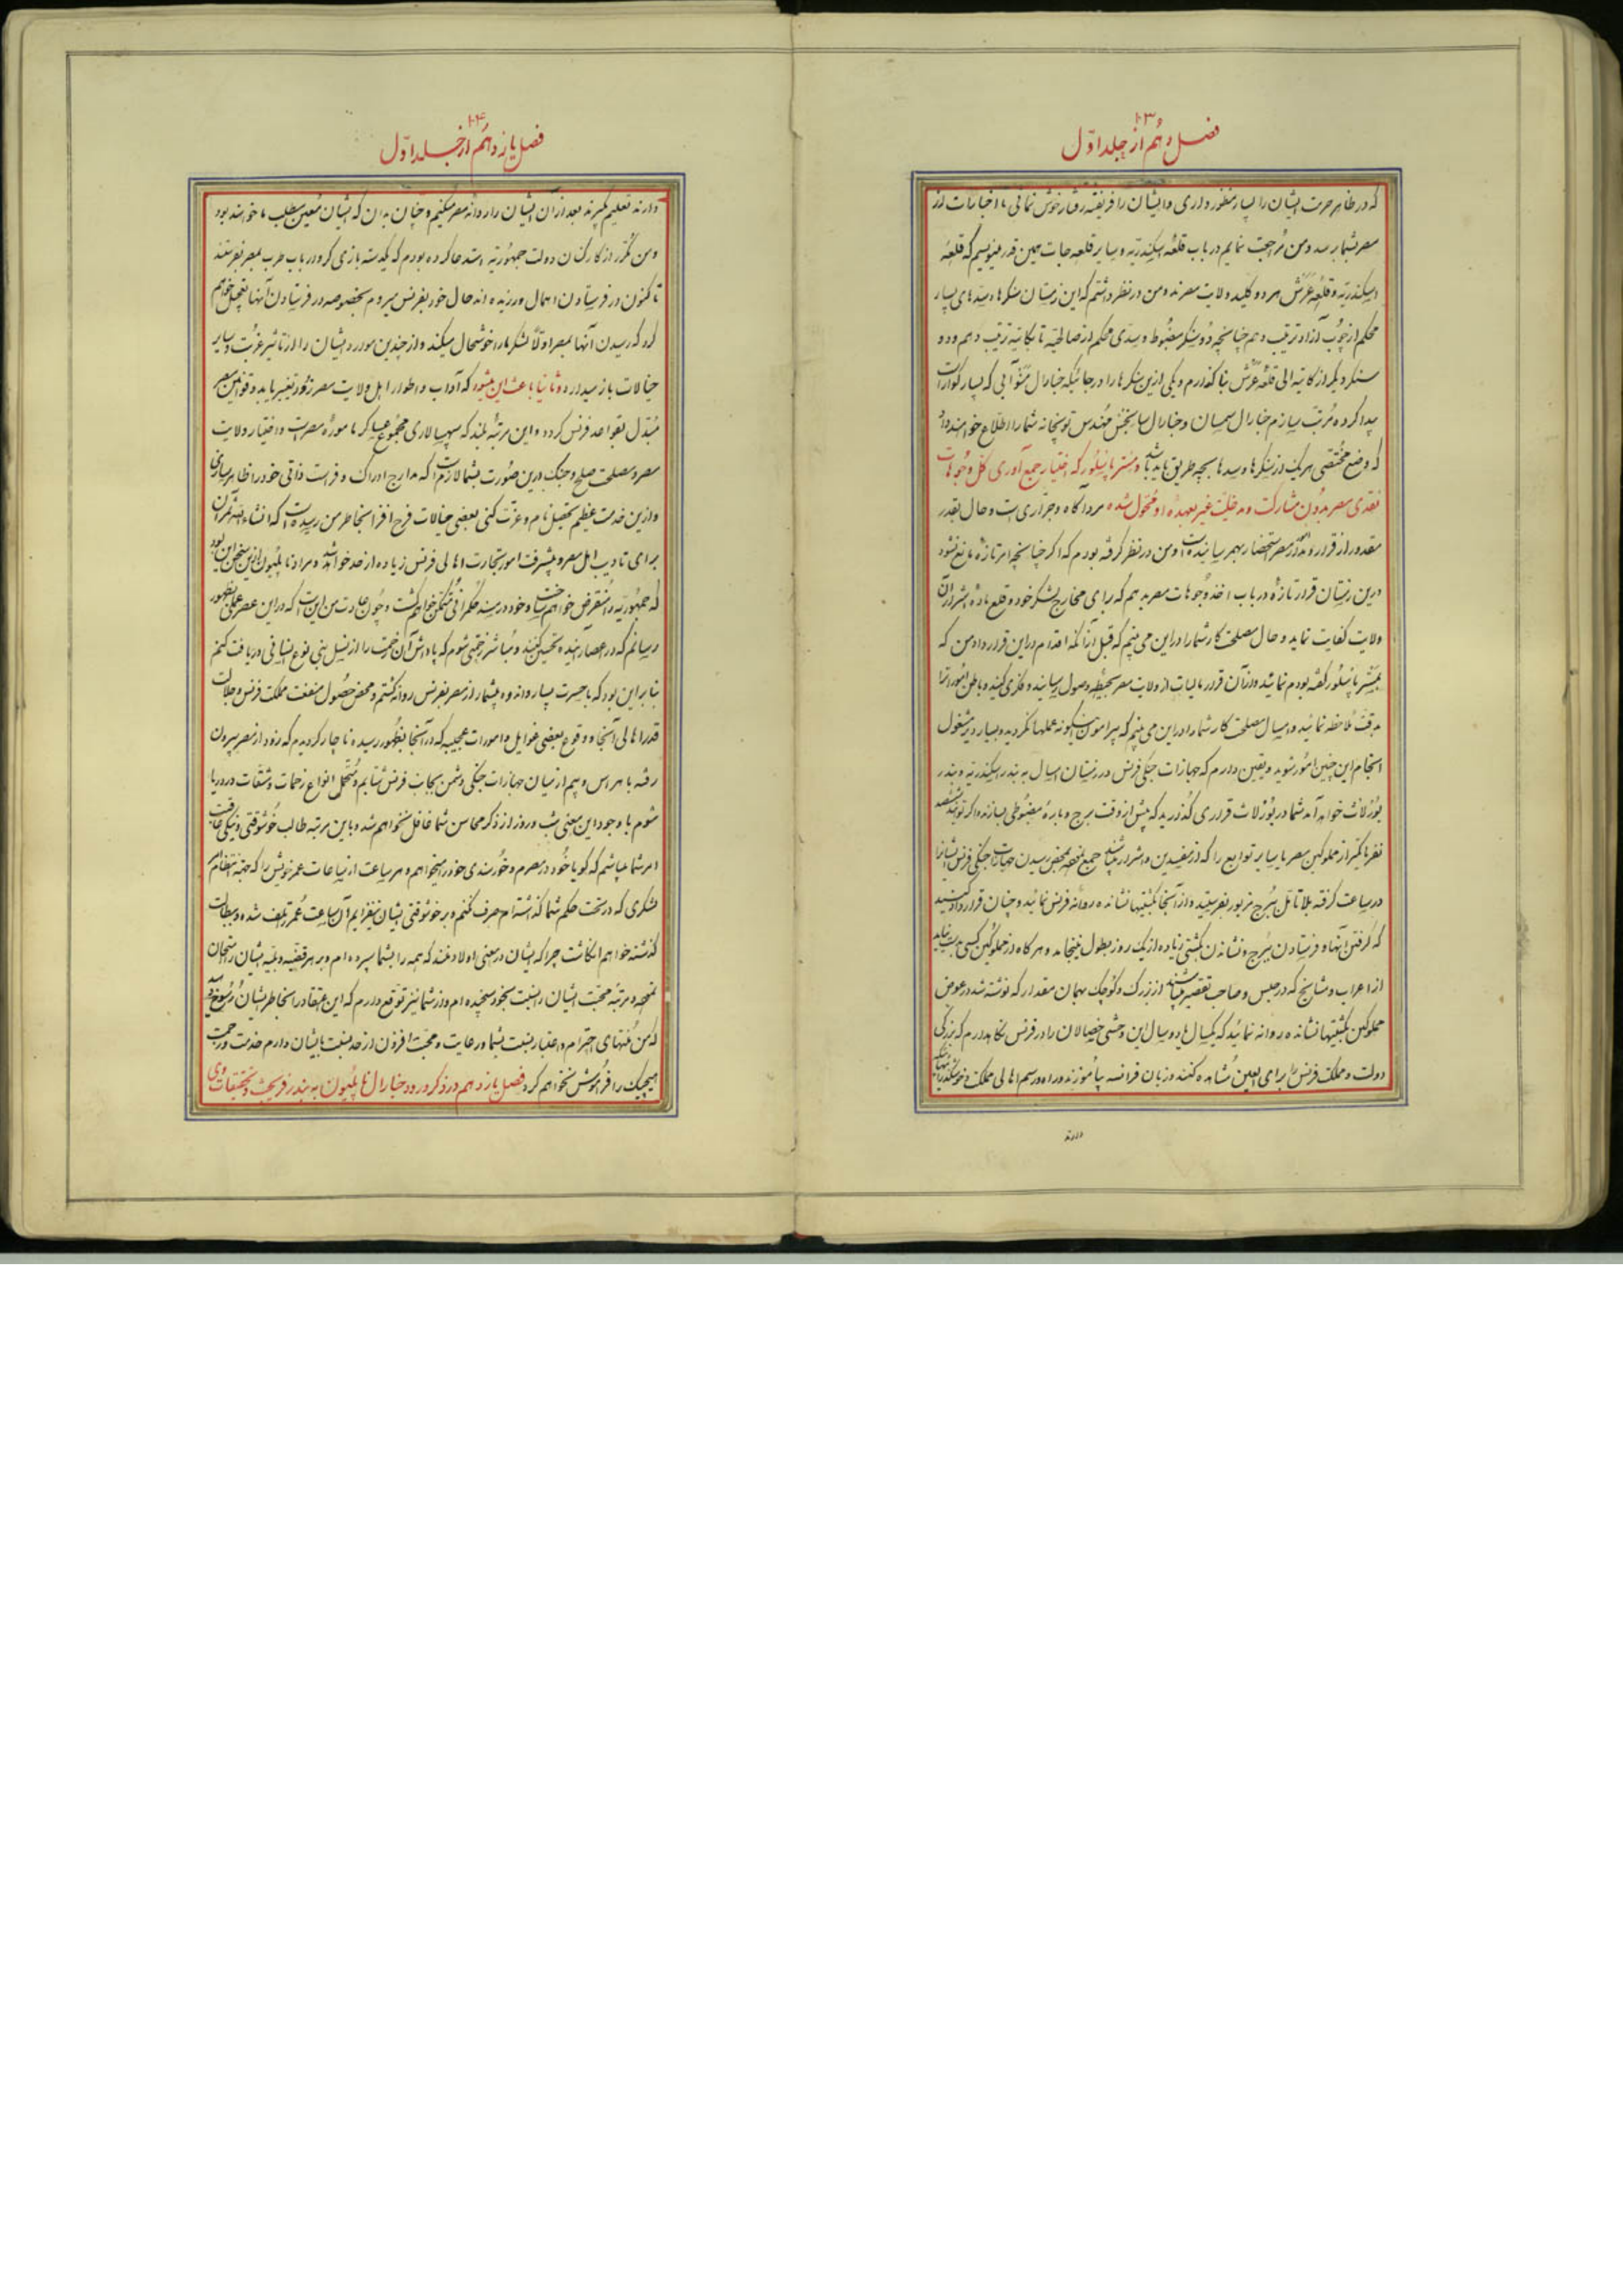 ۱۰۳
فصل دهم از جلد اول
که در ظاهر حرمت ایشان را بسیار منظور داری و ایشان را فریفته رفتار خوش نمائی تا اخبارات از
مصر بشما برسد و من مراجعت نمایم در باب قلعه اسکندریه و سایر قلعه جات همین قدر مینویسم که قلعه
اسکندریه و قلعه عرش هر دو کلید ولایت مصرند و من در نظر داشتم که این زمستان سنگرها و سدهای بسیار
محکم از چوب آزاد ترتیب دهم چنانچه دو سنگر مضبوط و سدی محکم از صالحیه تا بکاتیه ترتیب دهم و دو
سنگر دیگر از کاتیه الی قلعه عرش بنا گذارم و یکی ازین سنگرها را در جائیکه جنارال منو آبی که بسیار گوارا است
پیدا کرده مرتب سازم جنارال سمسان و جنارال سانجس مهندس توپخانه شما را اطلاع خواهند داد
که وضع مختصی هر یک از سنگرها و سدها بچه طریق باید باشد و مستر پاسیلور که اختیار جمع آوری کل وجوهات
نقدی مصر بدون مشارکت و مداخلت غیر بعهده او محول شده مرد آگاه و جراری است و حال بقدر
مقدور از قرارداد مصر استحضار بهم رسانیده است و من در نظر گرفته بودم که اگر چنانچه امر تازه مانع نشود
درین زمستان قرار تازه در باب اخذ وجوهات مصر بدهم که برای مخارج لشکر خود و قلع ماده اشرار آن
ولایت کفایت نماید و حال مصلحت کار شما را در این می بینم که قبل از آنکه اقدام در این قرارداد من که
بمستر پاسیلور گفته بودم نمائید و از آن قرار مالیات از ولایت مصر بحیطه وصول رسانید و فکری کنید و باطن امور را
بدقت ملاحظه نمائید و امسال مصلحت کار شما را در این می بینم که پیرامون اینگونه عملها نگردید و بسیار دیر مشغول
انجام این چنین امور شوید و یقین دارم که جهازات جنگی فرنس در زمستان امسال به بندر اسکندریه و بندر
بورلات خواهد آمد شما در بورلات قراری گذارید که پیش از وقت برج و باره مضبوطی بسازند و اگر توانید ششصد
نفر یا کمتر از مملوکین مصر یا سایر توابع را که از مفسدین و اشرار میباشند جمع نموده بمحض رسیدن جهازات جنگی فرنس ایشان را
در ساعت گرفته بلا تامل ببرج مزبور بفرستید و از آنجا بکشتیها نشانده روانه فرنس نمائید و چنان قرارداد کنید
که گرفتن آنها و فرستادن ببرج و نشاندن بکشتی زیاده از یک روز بطول نینجامد و هر گاه از مملوکین کسی بدست نیاید
از اعراب و مشایخ که در حبس و صاحب تقصیر میباشند از بزرگ و کوچک بهمان مقدار که نوشته شد در عوض
مملوکین بکشتیها نشانده روانه نمائید که یکسال یا دو سال این وحشی خصالان را در فرنس نگاهدارم که بزرگی
دولت و مملکت فرنس را برای العین مشاهده کنند و زبان فرانسه بیاموزند و راه و رسم اهالی مملکت و
دارند
۱۰۴
فصل یازدهم از جلد اول
دارند تعلیم گیرند بعد از آن ایشان را روانه مصر میکنیم و چنان بدان که ایشان معین مطلب ما خواهند بود
و من مکرر از کارکنان دولت جمهوریه استدعا کرده بودم که یکدسته بازی گر و ارباب طرب بمصر بفرستند
تا کنون در فرستادن اهمال ورزیده اند حال خود بفرنس میروم بخصوصه در فرستادن آنها تعجیل خواهم
کرد که رسیدن آنها بمصر اولا لشکر ما را خوشحال میکند و از چندین موارد ایشان را از تاثیر غربت و سایر
خیالات باز میدارد و ثانیا باعث این میشود که آداب و اطوار اهل ولایت مصر زود تغییر یابد و قوانین مصر
مبدل بقواعد فرنس گردد و این مرتبه بلند که سپهسالاری مجموع عساکر مامورۀ مصر است و اختیار ولایت
مصر و مصلحت صلح و جنگ درین صورت بشما لازم است که مدارج ادراک و فراست ذاتی خود را ظاهر سازی
و ازین خدمت عظیم تحصیل نام و عزت کنی بعضی خیالات فرح افزا بخاطر من رسیده است که انشاء الله ثمر آن
برای تادیب اهل مصر و پیشرفت امور تجارت اهالی فرنس زیاده از حد خواهد شد و مراد ناپلیون ازین سخن این بود
که جمهوریه را منقرض خواهم ساخت و خود در مسند حکمرانی متمکن خواهم گشت و چون عادت من این است که در این عصر عملی بظهور
رسانم که در اعصار آینده تحسین کنند و مباشر خدمتی شوم که پاداش آن خدمت را از نسل بنی نوع انسانی دریافت کنم
بنابراین بود که با حسرت بسیار و اندوه بیشمار از مصر بفرنس روانه گشتم و محض حصول منفعت مملکت فرنس و جلالت
قدر اهالی آنجا و وقوع بعضی غوایل و امورات عجیبه که در آنجا بظهور رسیده ناچار گردیدم که زود از مصر بیرون
رفته با هراس و بیم از میان جهازات جنگی دشمن بجانب فرنس شتابم و متحمل انواع زحمات و مشقات در دریا
شوم با وجود این معنی شب و روز از ذکر محاسن شما غافل نخواهم شد و باین مرتبه طالب خوشوقتی و نیکی عاقبت
امر شما میباشم که گویا خود در مصرم و خورسندی خود را میخواهم و هر ساعت از ساعات عمر خویش را که بجهة انتظام امر
لشکری که در تحت حکم شما گذاشته ام صرف نکنم و بر خوشوقتی ایشان نیفزایم آن ساعت عمرم تلف شده و ببطالت
گذشته خواهم انگاشت چرا که ایشان در معنی اولاد منند که همه را بشما سپرده ام و بر هر قضیه و بلیه ایشان را امتحان
نموده مرتبه محبت ایشان را نسبت بخود سنجیده ام و از شما نیز توقع دارم که این اعتقاد را بخاطر ایشان رسوخ دهید
که من منتهای احترام و اعتبار نسبت بشما و رعایت و محبت افزون از حد نسبت بایشان دارم خدمت و زحمت
هیچیک را فراموش نخواهم کرد فصل یازدهم در ذکر ورود جنارال ناپلیون به بندر فریجث و تحقیقات وی